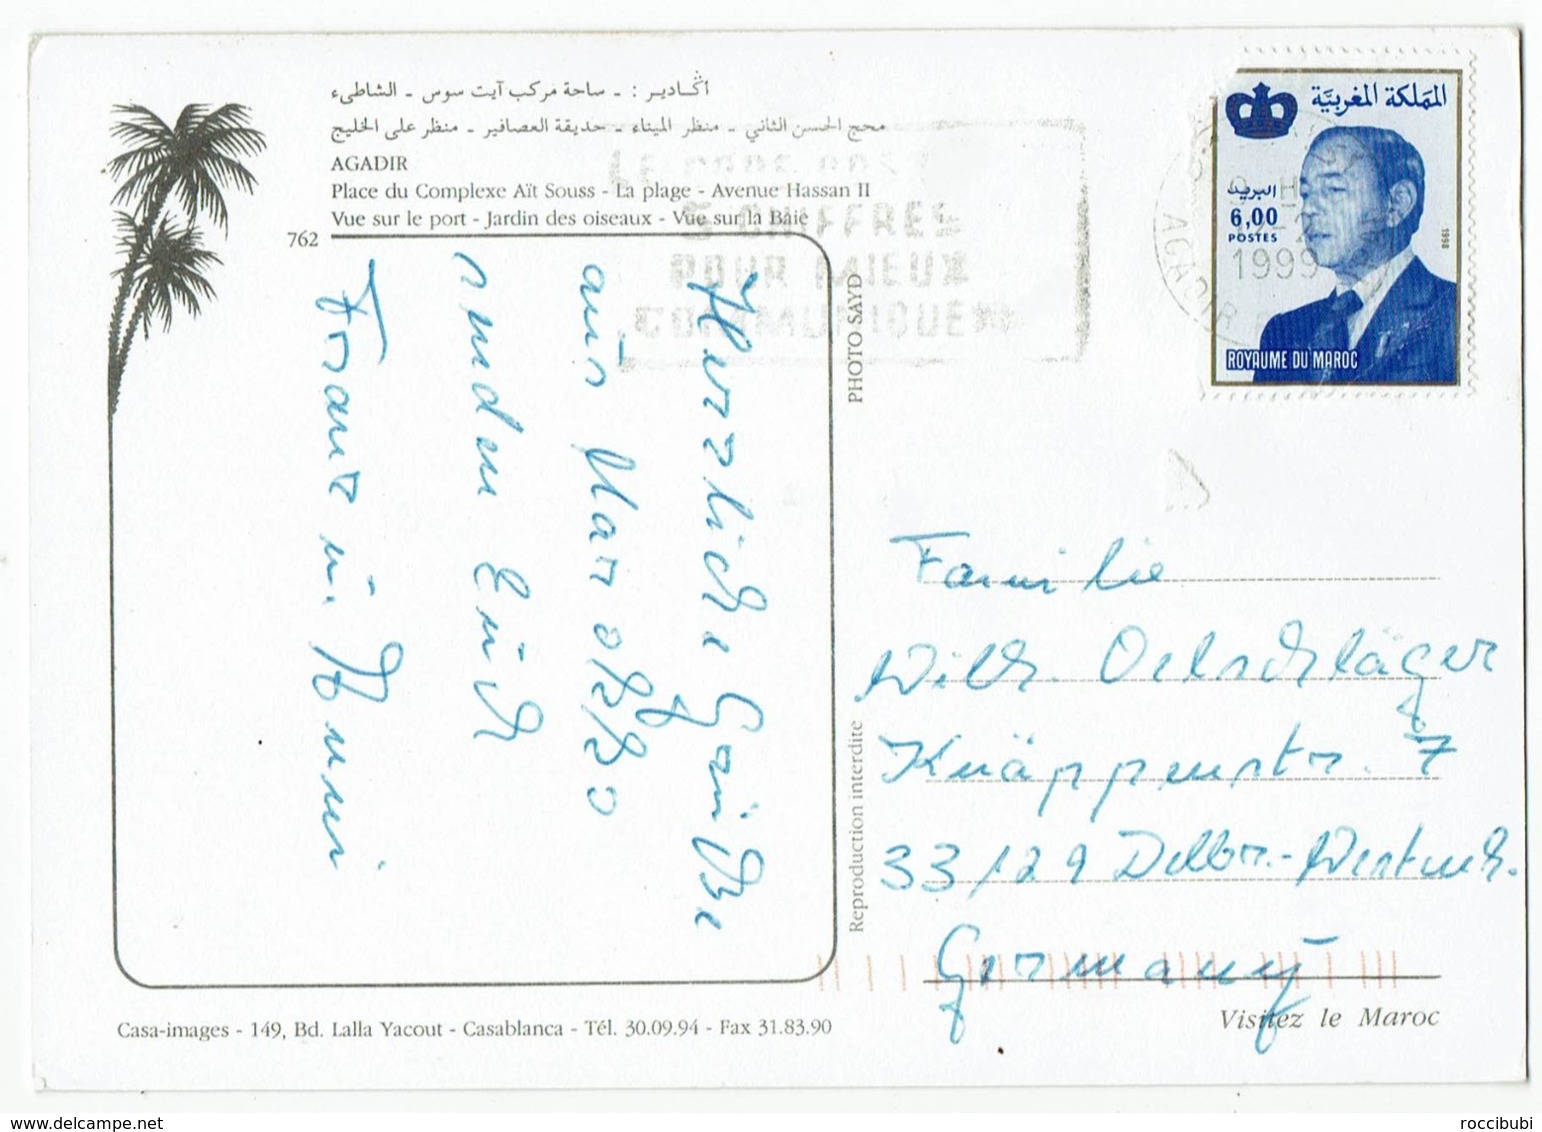 أڭادير : - ساحة مركب آيت سوس - الشاطىء
محج الحسن الثاني - منظر الميناء - حديقة العصافير - منظر على الخليج
AGADIR
Place du Complexe Aït Souss - La plage - Avenue Hassan II
Vue sur le port - Jardin des oiseaux - Vue sur la Baie
762
Herzliche Grüße
aus Marokko
senden Euch
Franz u.
LE CODE POSTAL
5 CHIFFRES
POUR MIEUX
COMMUNIQUER
PHOTO SAYD
Reproduction interdite
المملكة المغربية
البريد
6,00
POSTES
1998
ROYAUME DU MAROC
1999
AGADIR
Familie
Wilh. Oelschläger
Knäppenstr. 7
33129 Delbr.-Westenh.
Germany
Visitez le Maroc
Casa-images - 149, Bd. Lalla Yacout - Casablanca - Tél. 30.09.94 - Fax 31.83.90
roccibubi
www.delcampe.net